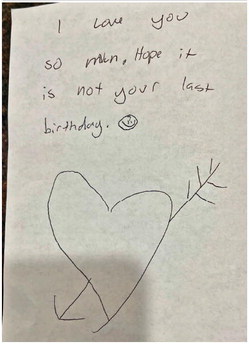 I Love you
so mun. Hope it
is not your last
birthday.